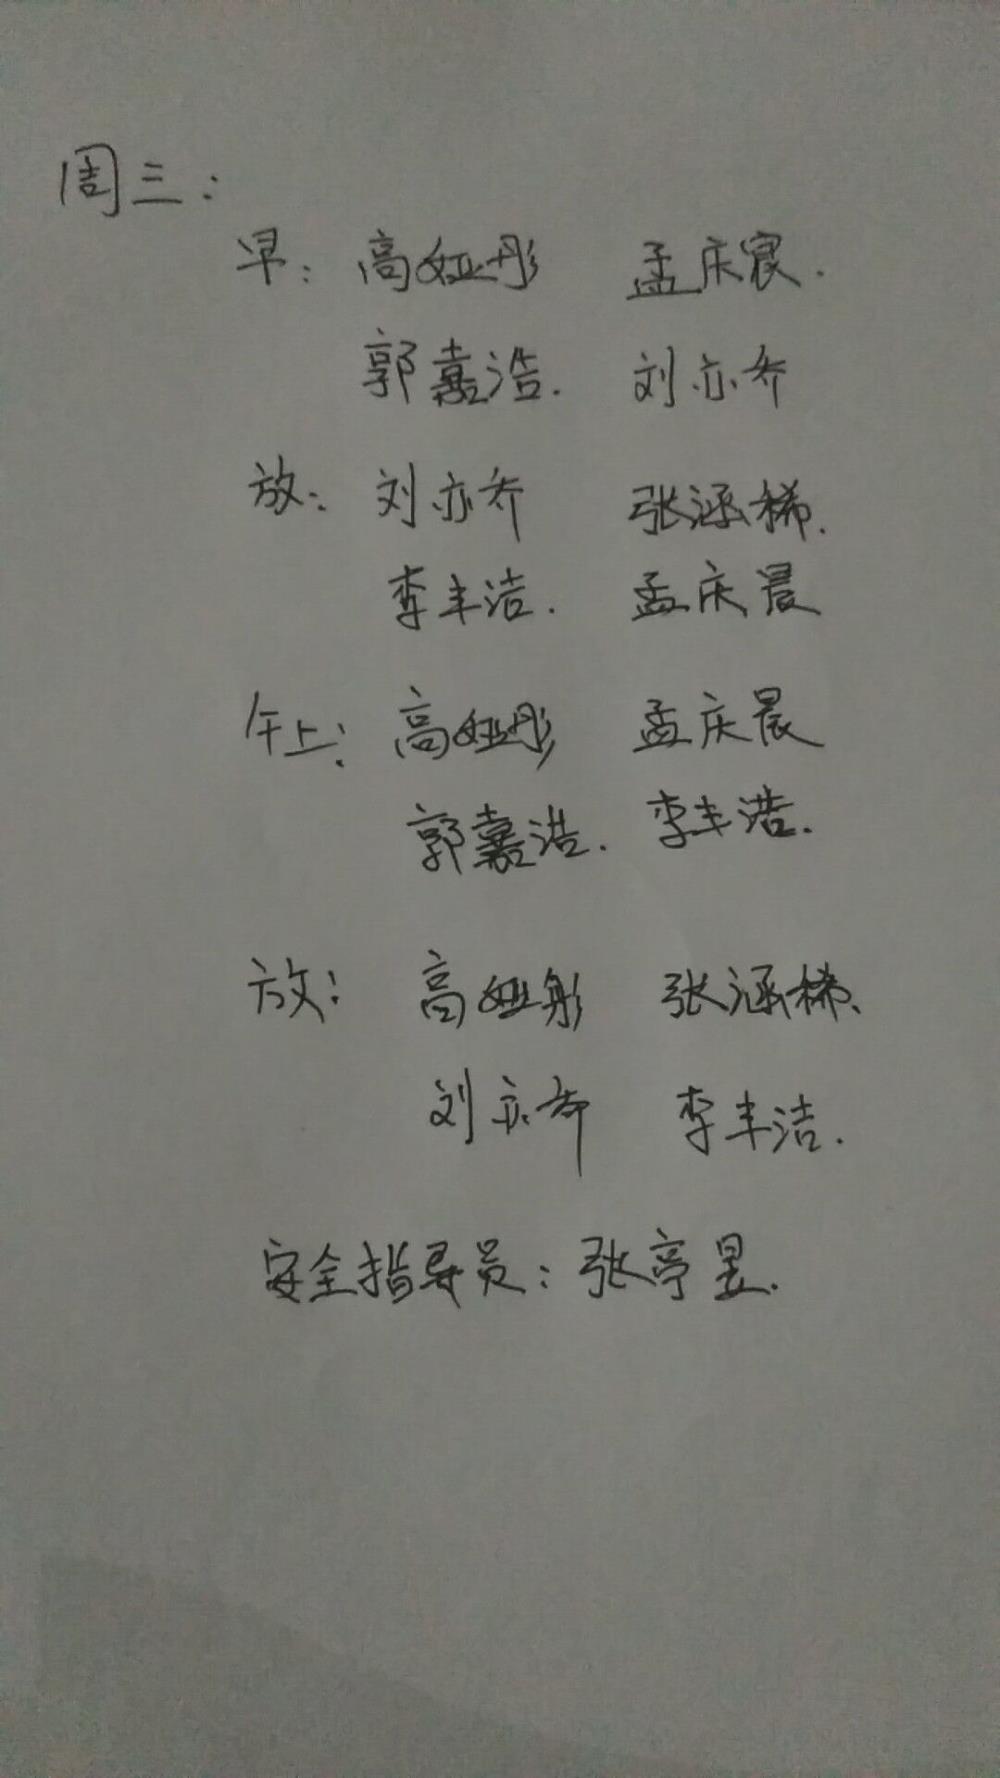 周三：
早：高娅彤 孟庆宸.
郭嘉浩. 刘亦乔
放：刘亦乔 张涵稀.
李丰洁. 孟庆晨
午上：高娅彤 孟庆晨
郭嘉浩. 李丰浩.
放：高娅彤 张涵稀、
刘亦乔 李丰洁.
安全指导员：张亭昱.